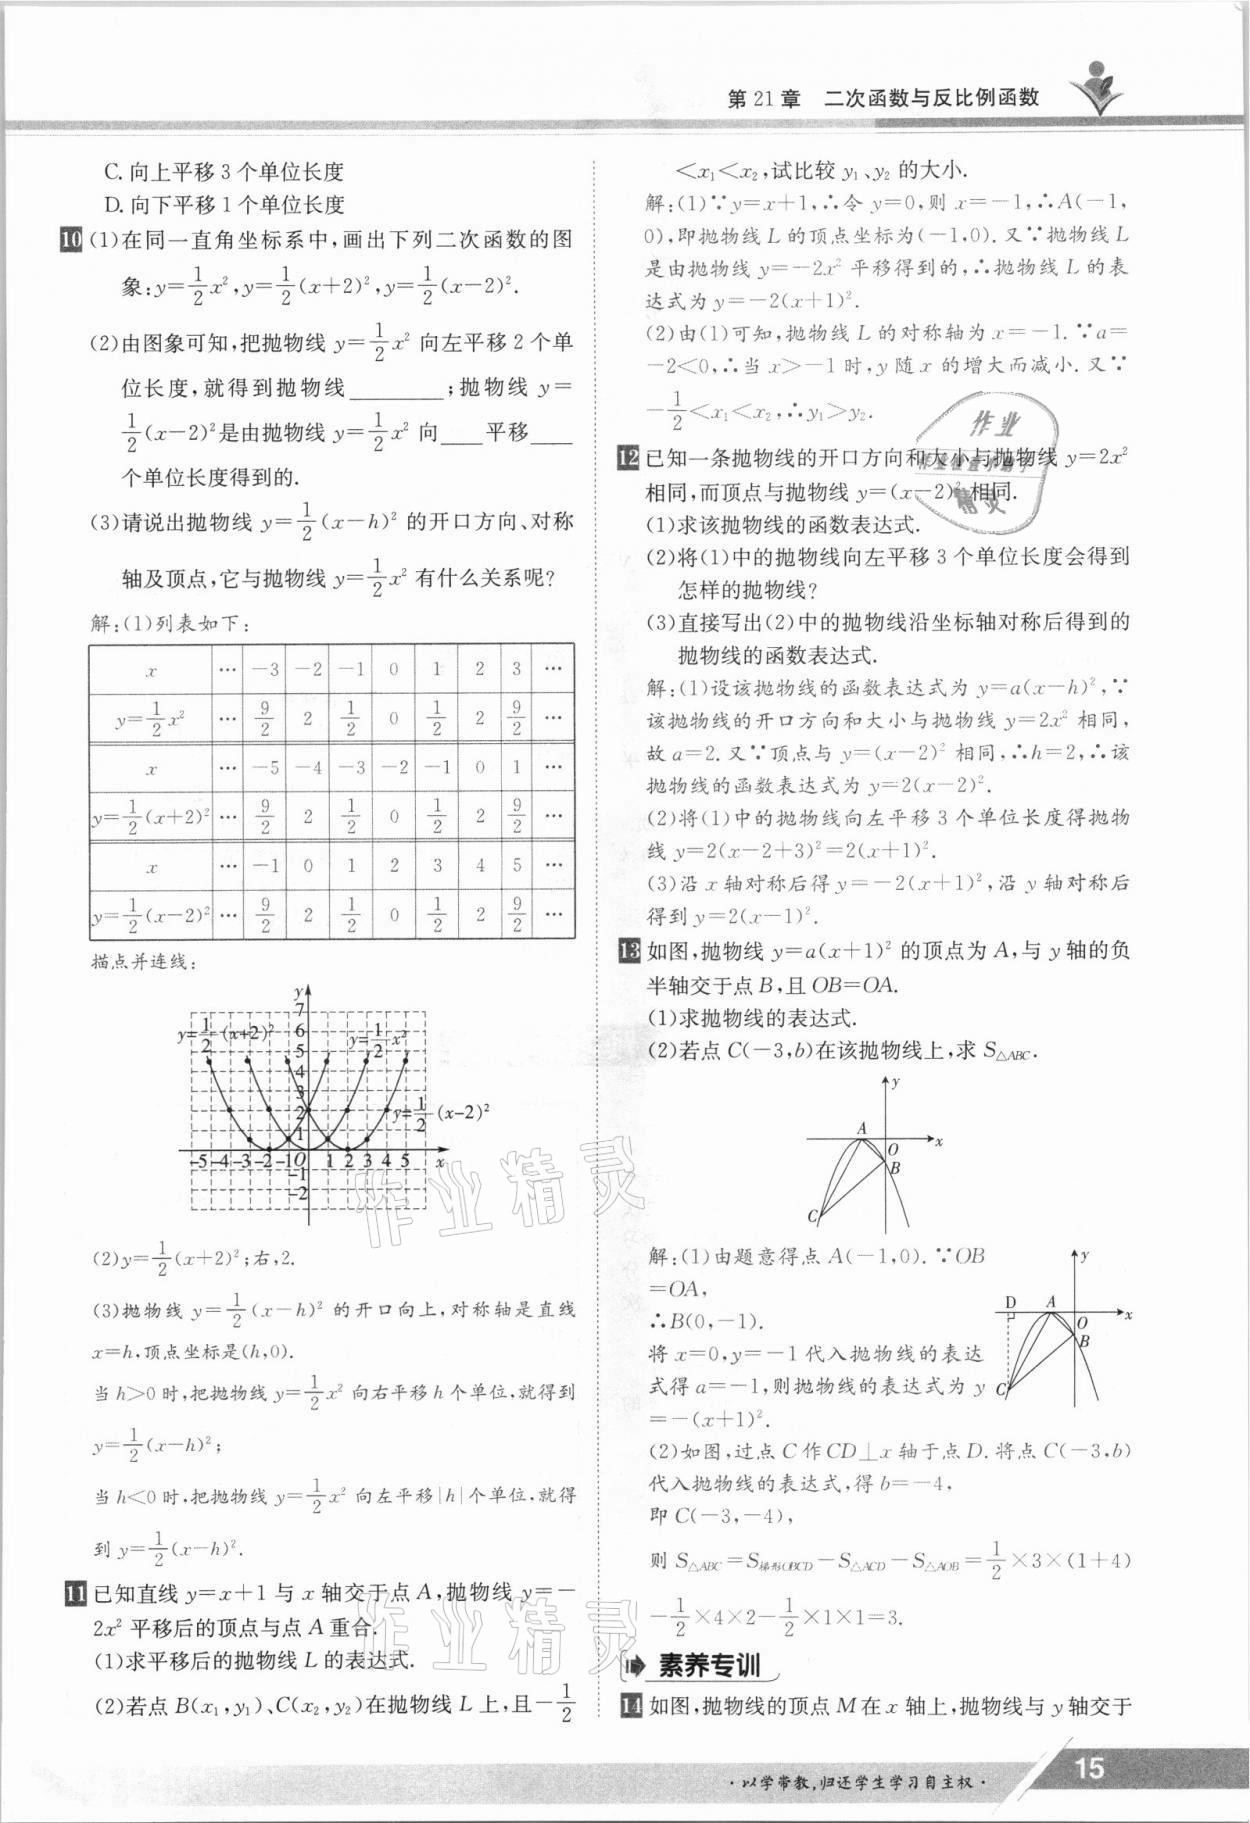 第 21 章 二次函数与反比例函数
C. 向上平移 3 个单位长度
D. 向下平移 1 个单位长度
10 (1)在同一直角坐标系中,画出下列二次函数的图
象:y=1/2x²,y=1/2(x+2)²,y=1/2(x-2)².
(2)由图象可知,把抛物线 y=1/2x² 向左平移 2 个单
位长度,就得到抛物线________;抛物线 y=
1/2(x-2)²是由抛物线 y=1/2x² 向___平移___
个单位长度得到的.
(3)请说出抛物线 y=1/2(x-h)² 的开口方向、对称
轴及顶点,它与抛物线 y=1/2x² 有什么关系呢?
解:(1)列表如下:
x … -3 -2 -1 0 1 2 3 …
y=1/2x² … 9/2 2 1/2 0 1/2 2 9/2 …
x … -5 -4 -3 -2 -1 0 1 …
y=1/2(x+2)² … 9/2 2 1/2 0 1/2 2 9/2 …
x … -1 0 1 2 3 4 5 …
y=1/2(x-2)² … 9/2 2 1/2 0 1/2 2 9/2 …
描点并连线:
y
7
y=1/2(x+2)² 6 y=1/2x²
5
4
3
2 y=1/2(x-2)²
1
-5 -4 -3 -2 -1 O 1 2 3 4 5 x
-1
-2
(2)y=1/2(x+2)²;右,2.
(3)抛物线 y=1/2(x-h)² 的开口向上,对称轴是直线
x=h,顶点坐标是(h,0).
当 h>0 时,把抛物线 y=1/2x² 向右平移 h 个单位,就得到
y=1/2(x-h)²;
当 h<0 时,把抛物线 y=1/2x² 向左平移|h|个单位,就得
到 y=1/2(x-h)².
11 已知直线 y=x+1 与 x 轴交于点 A,抛物线 y=-
2x² 平移后的顶点与点 A 重合.
(1)求平移后的抛物线 L 的表达式.
(2)若点 B(x₁,y₁)、C(x₂,y₂)在抛物线 L 上,且-1/2
<x₁<x₂,试比较 y₁、y₂ 的大小.
解:(1)∵y=x+1,∴令 y=0,则 x=-1,∴A(-1,
0),即抛物线 L 的顶点坐标为(-1,0). 又∵抛物线 L
是由抛物线 y=-2x² 平移得到的,∴抛物线 L 的表
达式为 y=-2(x+1)².
(2)由(1)可知,抛物线 L 的对称轴为 x=-1. ∵a=
-2<0,∴当 x>-1 时,y 随 x 的增大而减小. 又∵
-1/2<x₁<x₂,∴y₁>y₂.
12 已知一条抛物线的开口方向和大小与抛物线 y=2x²
相同,而顶点与抛物线 y=(x-2)² 相同.
(1)求该抛物线的函数表达式.
(2)将(1)中的抛物线向左平移 3 个单位长度会得到
怎样的抛物线?
(3)直接写出(2)中的抛物线沿坐标轴对称后得到的
抛物线的函数表达式.
解:(1)设该抛物线的函数表达式为 y=a(x-h)²,∵
该抛物线的开口方向和大小与抛物线 y=2x² 相同,
故 a=2. 又∵顶点与 y=(x-2)² 相同,∴h=2,∴该
抛物线的函数表达式为 y=2(x-2)².
(2)将(1)中的抛物线向左平移 3 个单位长度得抛物
线 y=2(x-2+3)²=2(x+1)².
(3)沿 x 轴对称后得 y=-2(x+1)²,沿 y 轴对称后
得到 y=2(x-1)².
13 如图,抛物线 y=a(x+1)² 的顶点为 A,与 y 轴的负
半轴交于点 B,且 OB=OA.
(1)求抛物线的表达式.
(2)若点 C(-3,b)在该抛物线上,求 S△ABC.
y
A
O x
B
C
解:(1)由题意得点 A(-1,0). ∵OB
=OA,
∴B(0,-1).
将 x=0,y=-1 代入抛物线的表达
式得 a=-1,则抛物线的表达式为 y
=-(x+1)².
y
D A
O x
B
C
(2)如图,过点 C 作 CD⊥x 轴于点 D. 将点 C(-3,b)
代入抛物线的表达式,得 b=-4,
即 C(-3,-4),
则 S△ABC=S梯形OBCD-S△ACD-S△AOB=1/2×3×(1+4)
-1/2×4×2-1/2×1×1=3.
素养专训
14 如图,抛物线的顶点 M 在 x 轴上,抛物线与 y 轴交于
·以学带教,归还学生学习自主权·
15
作业精灵
作业精灵
作业
精灵